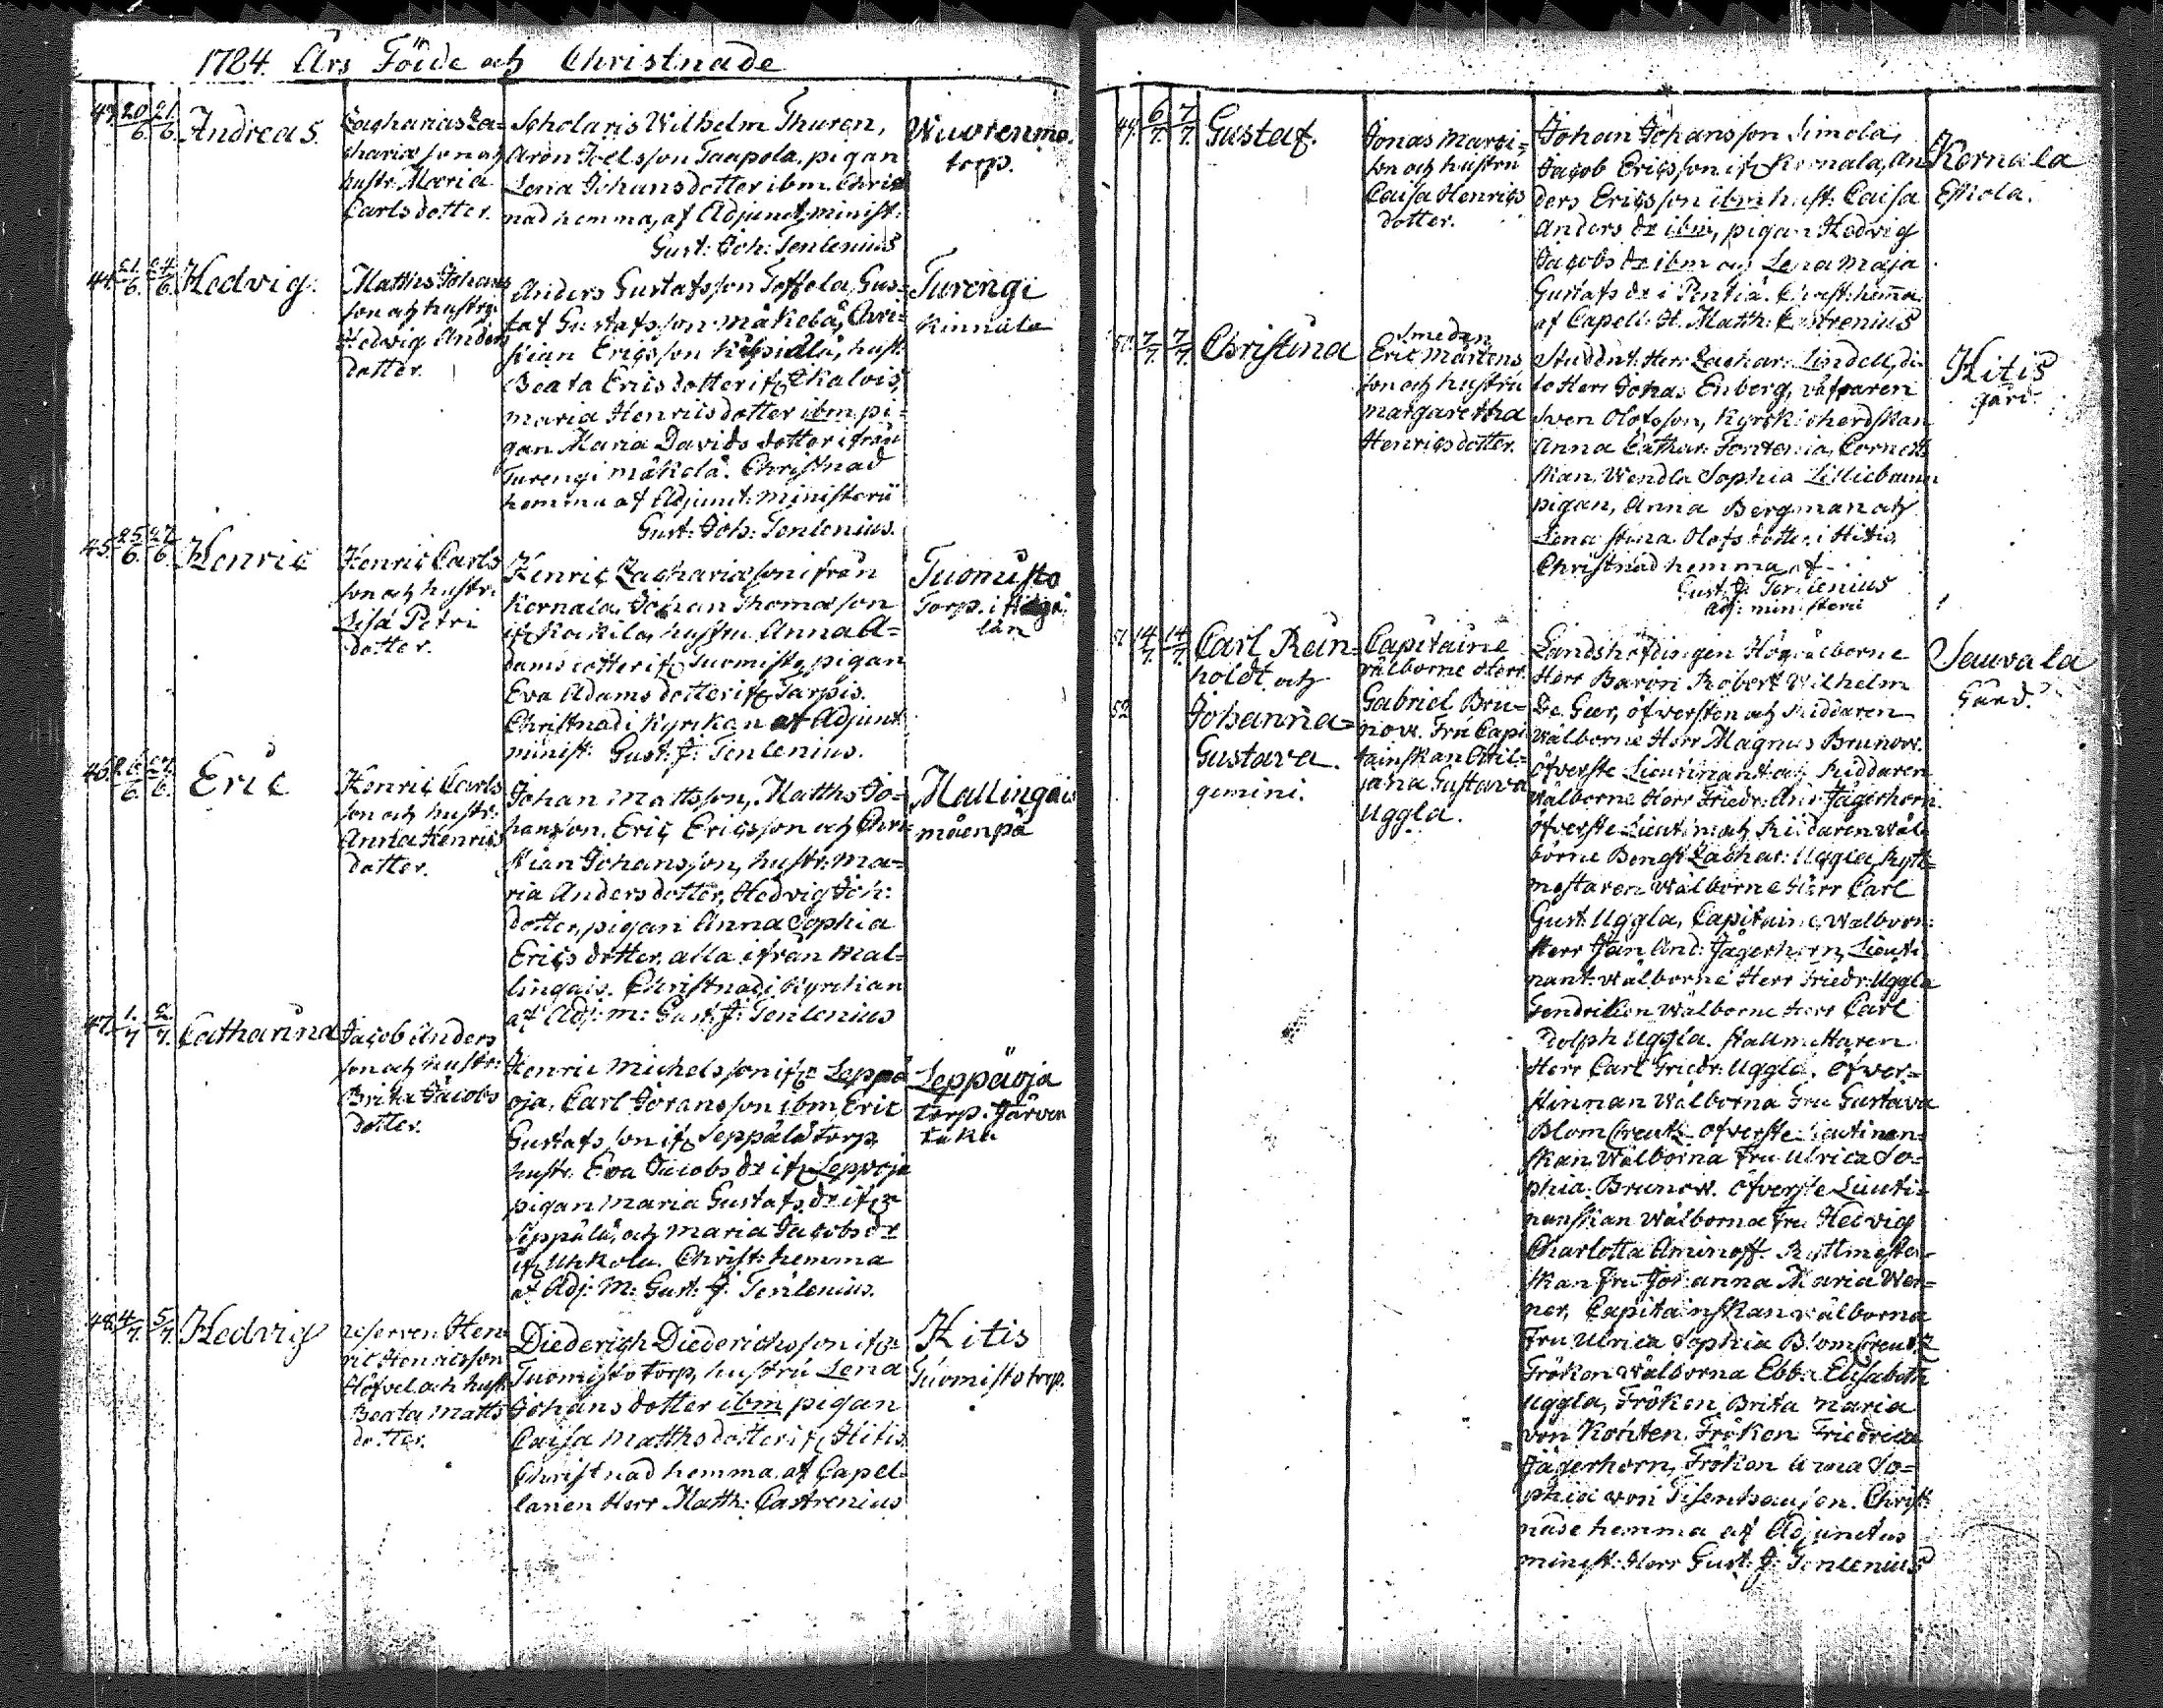 1784. Års Födde och Christnade
43. 20/6. 21/6. Andreas.
Zacharias Za-
chariæ son och
hustr. Maria
Carls dotter.
Scholaris Wilhelm Thuren,
Aron Joelsson Taapola, pigan
Lena Johansdotter ibm. Christ
nad hemma, af Adjunct. minist:
Gust: Joh: Tenlenius
Wuorenma.
torp.
44. 21/6. 24/6. Hedvig.
Matths Johans
son och hustr.
Hedvig Anders
dotter.
Anders Gustafsson Toffola, Gus-
taf Gustafsson Mäkelä, Chri-
stian Ericsson, hust:
Beata Erics dotter ifr
Maria Henricsdotter ibm pi-
gan Maria Davids dotter ifrån
Turengi Mäkelä. Christnad
hemma af Adjunct: ministerii
Gust: Joh: Tenlenius.
Turengi
Kinnala
45. 25/6. 27/6. Henric
Henric Carls
son och hustr.
Lisa Petri
dotter.
Henric Zachariæ son ifrån
Kernala, Johan Thomasson
ifr Kaikila, hustru Anna A-
dams dotter ifr Tuomisto, pigan
Eva Adams dotter ifr Tarpis.
Christnad i Kyrkan af Adjunct
minist: Gust: J: Tenlenius.
Tuomisto
Torp. i
län
46. 26/6. 27/6. Eric
Henric Carls
son och hustr:
Anna Henrics
dotter.
Johan Mattsson, Matths Jo-
hansson, Eric Ericsson och Chri-
stian Johansson, hustr: Ma-
ria Andersdotter, Hedvig Joh:
dotter, pigan Anna Sophia
Erics dotter, alla ifrån Mal-
lingais. Christnad i Kyrckan
af Adj: m: Gust: J: Tenlenius
Mallingais
måenpä
47. 1./7 2./7. Catharina
Jacob Anders
son och hustr:
Brita Jacobs
dotter.
Henric Michelsson ifr Leppä
oja, Carl Göransson ibm, Eric
Gustafs son ifr Seppälä torp
hustr. Eva Jacobs dr ifr Lepvoja
pigan Maria Gustafs dr ifr
Seppälä, och Maria Jacobs dr
ifr Uhkola. Christ: hemma
af Adj: M: Gust: J: Tenlenius.
Leppäoja
torp. Järven
taka
48. 4/7. 5/7. Hedvig
reserven Hen-
ric Henricsson
Höfvel och hust:
Beata Matts
dotter.
Diederich Diedericksson ifr
Tuomisto torp, hustru Lena
Johans dotter ibm pigan
Caisa Matths dotter ifr Hitis.
Christnad hemma af Capel-
lanen Herr Matth: Castrenius
Hitis
Tuomisto torp.
49. 6/7. 7/7. Gustaf.
Jonas Marti-
son och hustru
Caisa Henrics
dotter.
Johan Johansson Simola,
Jacob Ericsson ifr Kernala, An-
ders Ericsson ibm hust: Caisa
Anders dr ibm, pigan Hedvig
Jacobs dr ibm och Lena Maja
Gustafs dr i Pentiä. Christ: hemma
af Capell: H. Matth: Castrenius
Kernala
Eskola.
50. 7/7. 7/7. Christina
Smeden
Eric Mårtens
son och hustru
Margaretha
Henricsdotter.
Student: Herr Zachar: Lindell, di-
to Herr Johas Enberg, väfvaren
Sven Olofsson, Kyrckoherdskan
Anna Cathar: Forstenia, Cornett-
skan, Wendla Sophia Lilliebrunn
pigan, Anna Bergman och
Lena Stina Olofs dotter i Hitis
Christnad hemma af
Gust: J: Tenlenius
Adj: ministerii
Hitis
gård.
51 14/7. 14/7. Carl Rein-
holdt och
52 Johanna
Gustava.
gemini.
Capitaine
välborne Herr
Gabriel Bru-
now. Fru Capi-
tainskan Otil-
jana Gustava
Uggla.
Landshöfdingen Högvälborne
Herr Baron Robert Wilhelm
De Geer, öfversten och Riddaren
Wälborne Herr Magnus Brunow.
öfverste Lieutinandt och Riddaren
Wälborne Herr Friedr: Anr: Jägerhorn.
öfverste Lieutin: och Riddaren wäl-
borne Bengt Zachar: Uggla, Rytt-
mestaren Wälborne Herr Carl
Gust: Uggla, Capitaine Wälborn:
Herr Jan And: Jägerhorn, Lieuti
nant. Wälborne Herr Friedr: Uggla
Fendriken Wälborne Herr Carl
Adolph Uggla. Stallmestaren
Herr Carl Friedr: Uggla. öfver-
stinnan Wälborna Fru Gustava
Blomcreutz. öfverste Lieutinan-
skan Wälborna Fru Ulrica So-
phia Brunow. öfverste Lieuti-
nanskan Wälborna Fru Hedvig
Charlotta Aminoff. Ryttmestar-
skan Fru Johanna Maria Wer-
ner, Capitainskan wälborna
Fru Ulrica Sophia Blomcreutz
Fröken Wälborna Ebba Elisabeth
Uggla, Fröken Brita Maria
von Kothen, Fröken Friedrica
Jägerhorn, Fröken Anna So-
phia von Tisenhausen. Christ:
nade hemma af Adjunctus
minist: Herr Gust: J: Tenlenius
Sauvala
Gård.